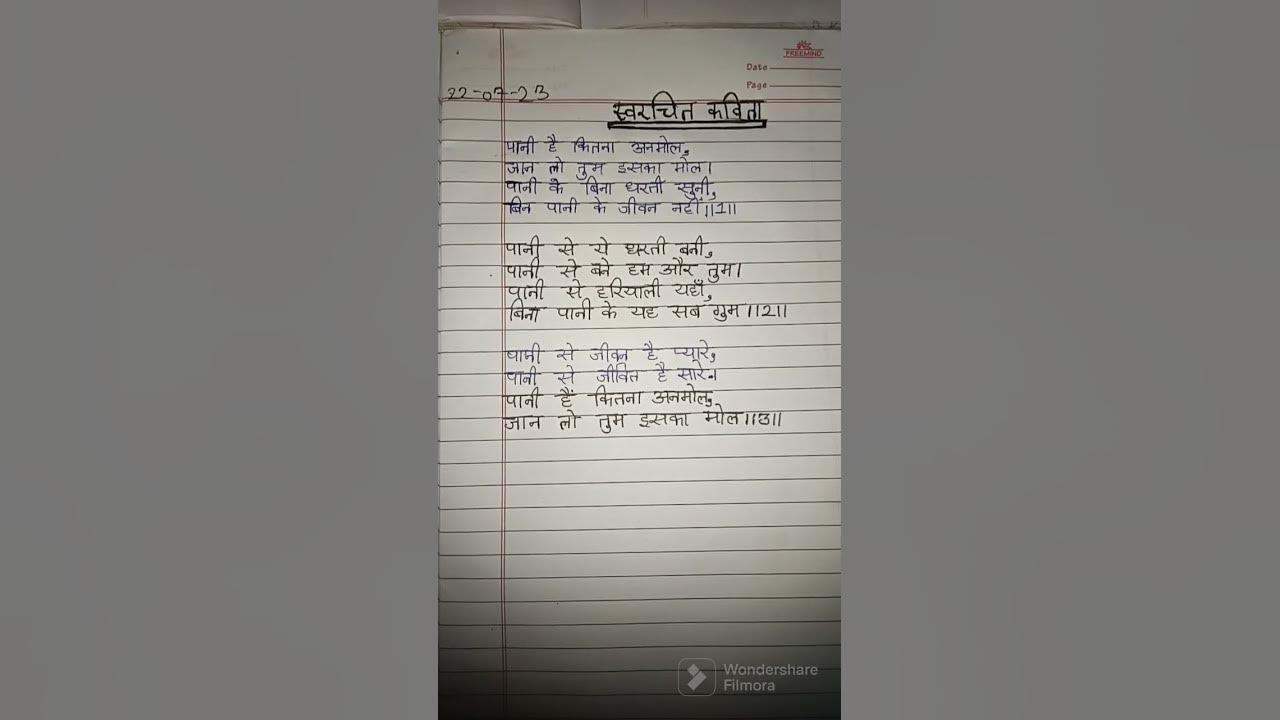 FREEMIND
Date
Page
22-07-23
स्वरचित कविता
पानी है कितना अनमोल,
जान लो तुम इसका मोल।
पानी के बिना धरती सुनी,
बिन पानी के जीवन नहीं।।1।।
पानी से ये धरती बनी,
पानी से बने हम और तुम।
पानी से हरियाली यहाँ,
बिना पानी के यह सब गुम।।2।।
पानी से जीवन है प्यारे,
पानी से जीवित है सारे।
पानी हैं कितना अनमोल,
जान लो तुम इसका मोल।।3।।
Wondershare
Filmora